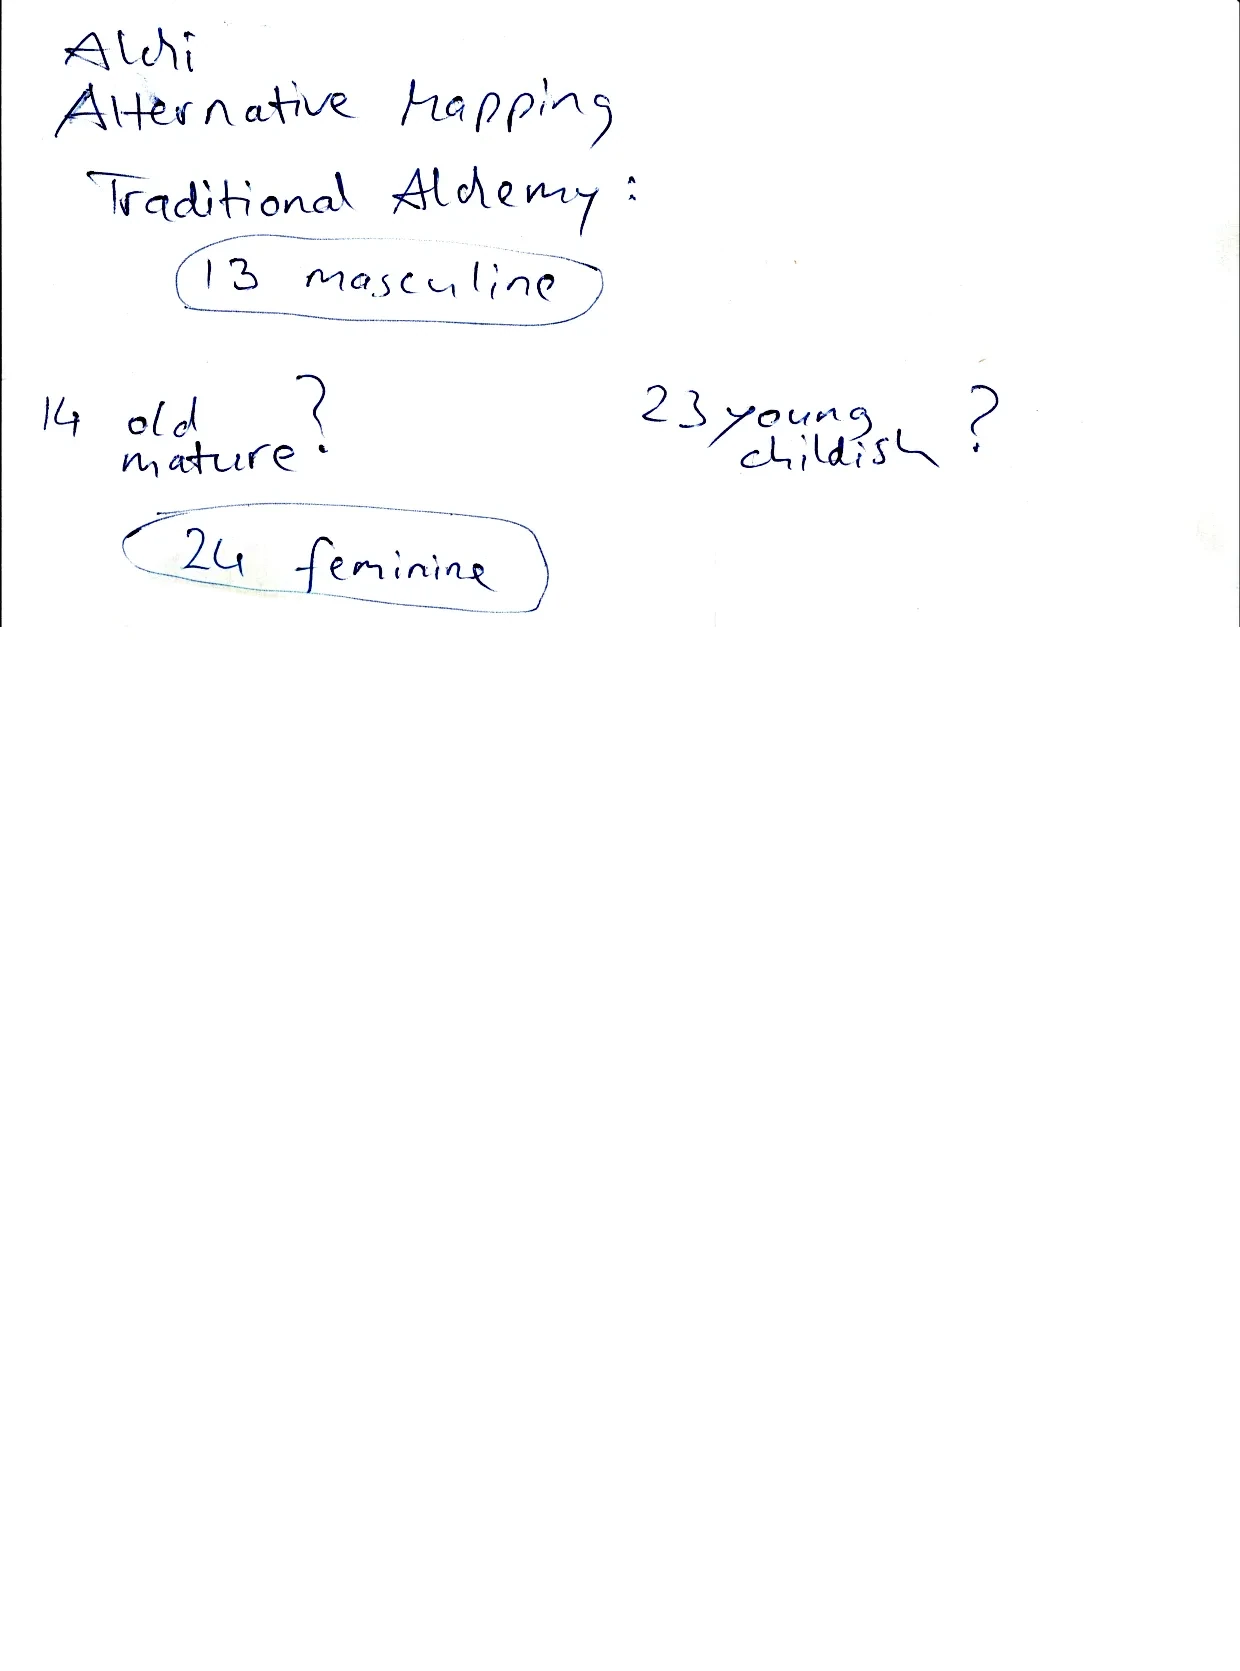 Alchi
Alternative Mapping
Traditional Alchemy:
13 masculine
14 old mature?
23 young childish?
24 feminine